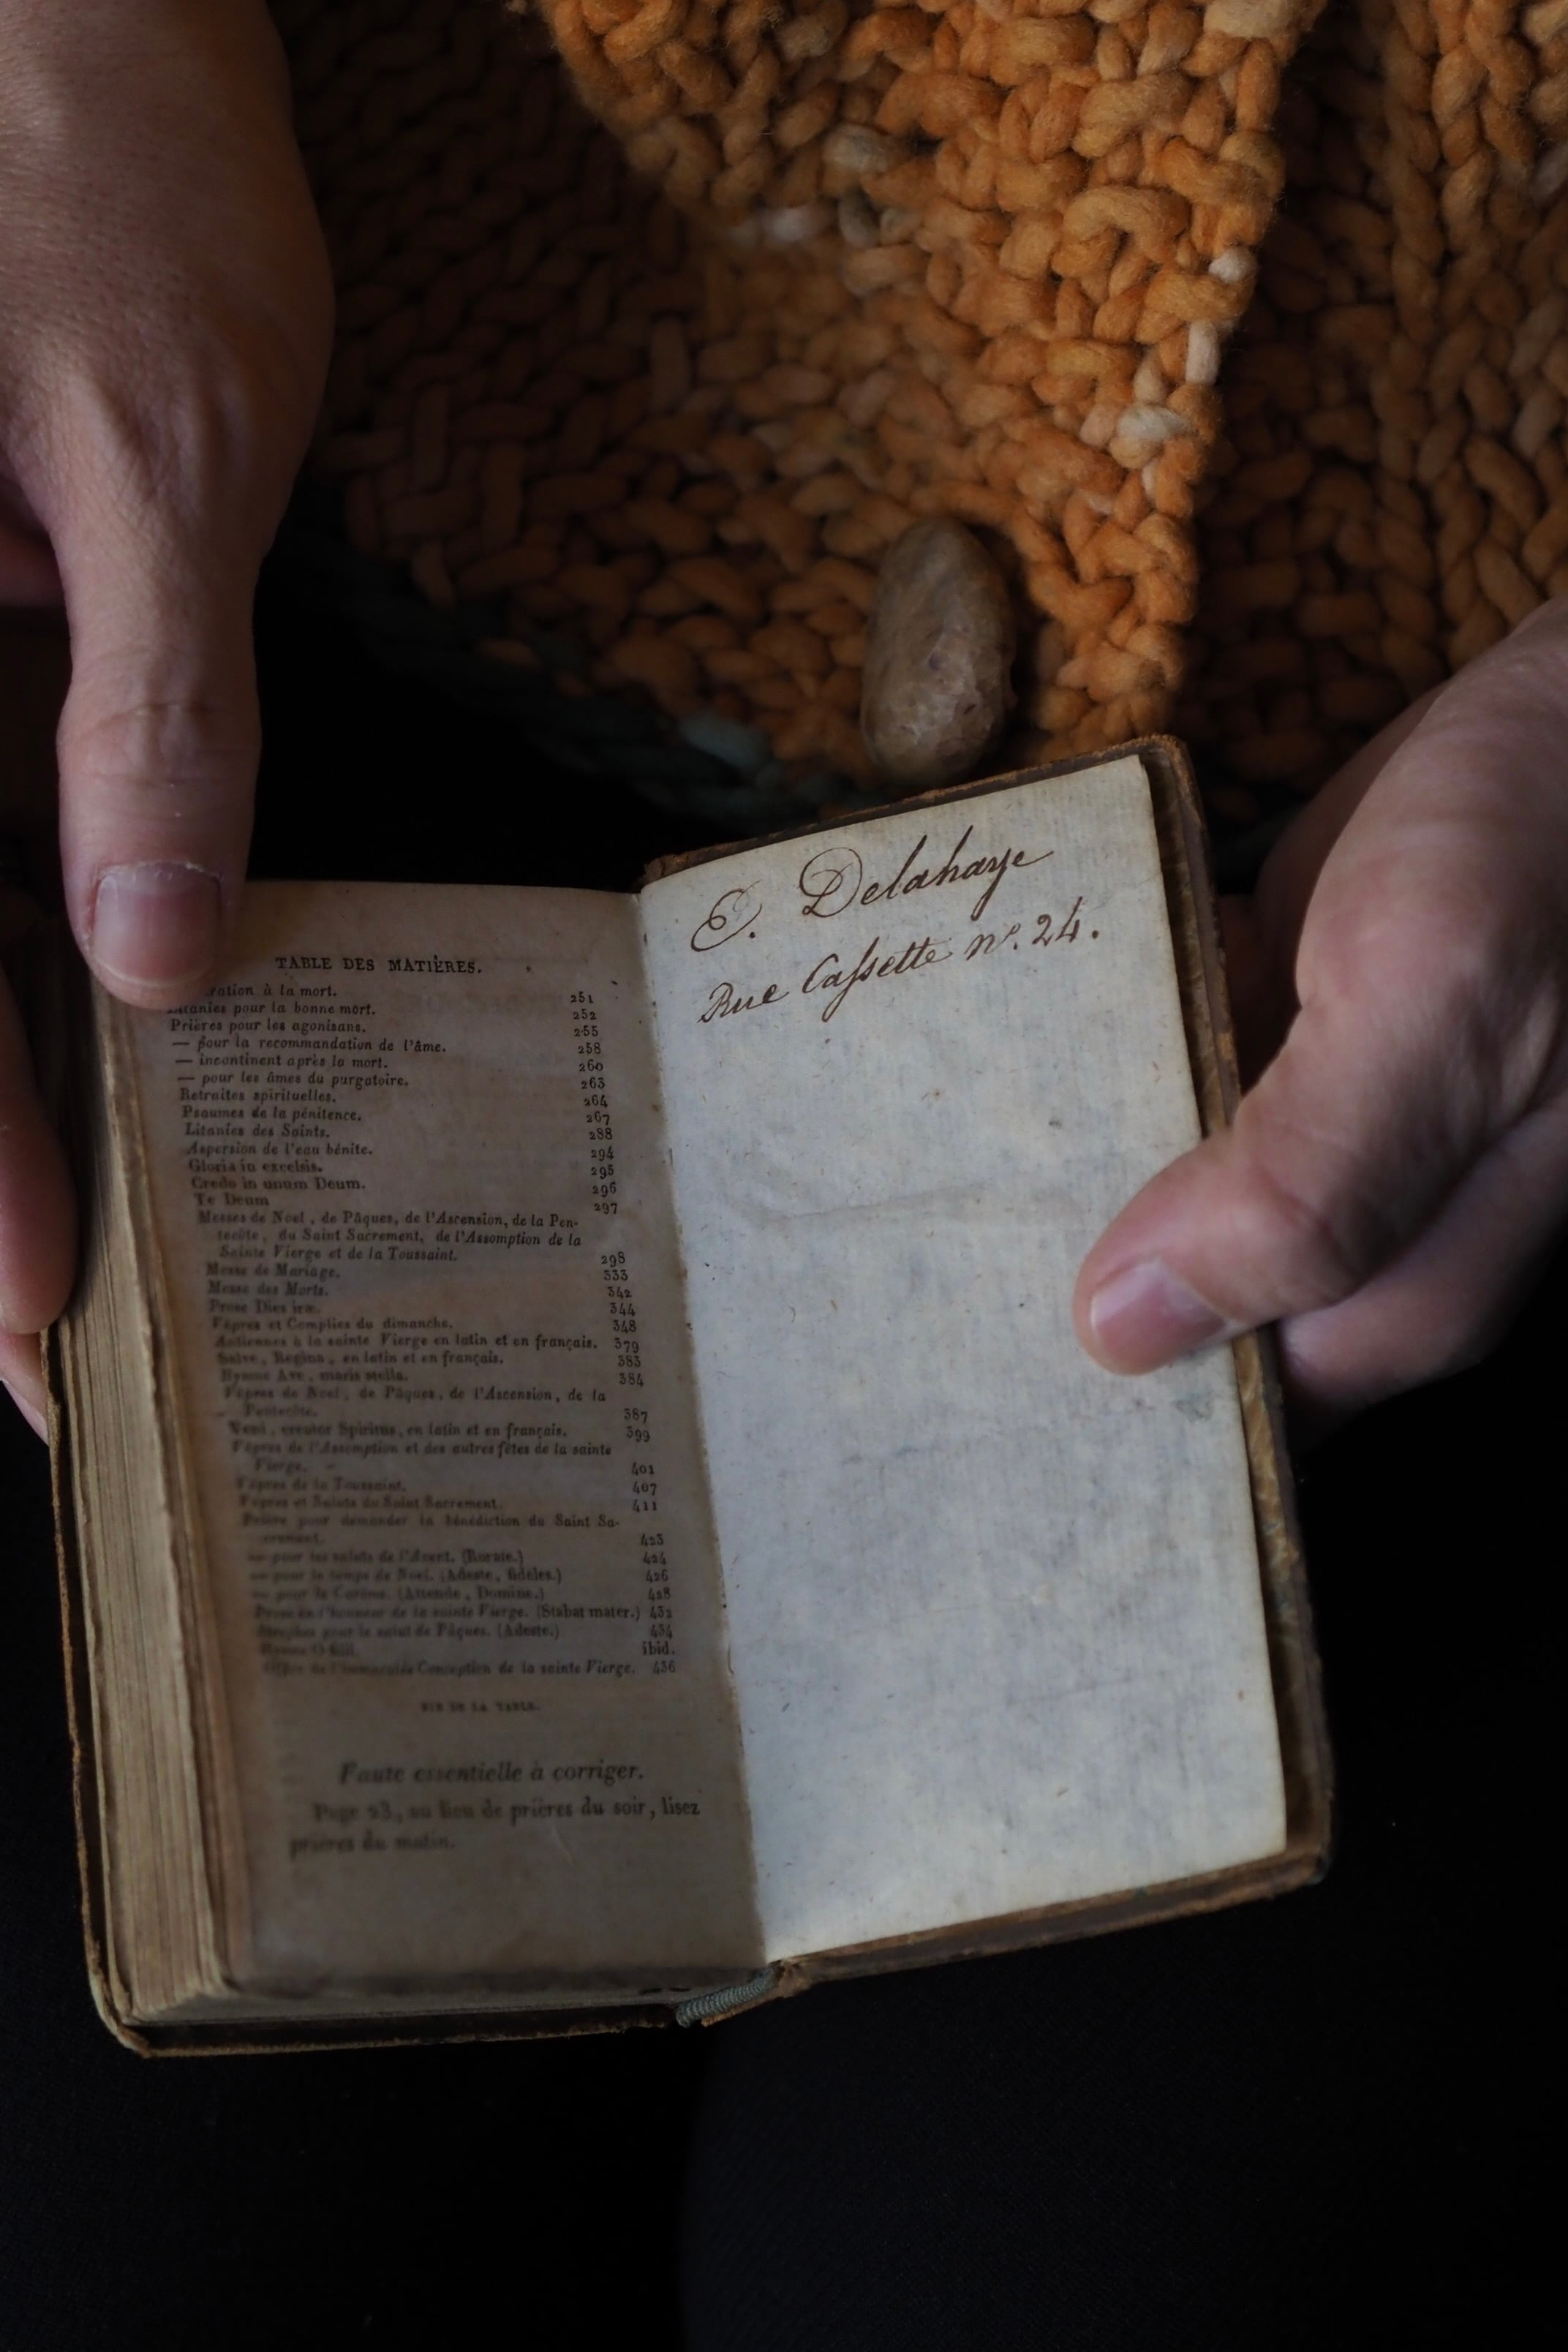 TABLE DES MATIÈRES.
à la mort. 251
Litanies pour la bonne mort. 252
Prières pour les agonisans. 255
— pour la recommandation de l'âme. 258
— incontinent après la mort. 260
— pour les âmes du purgatoire. 263
Retraites spirituelles. 264
Psaumes de la pénitence. 267
Litanies des Saints. 288
Aspersion de l'eau bénite. 294
Gloria in excelsis. 295
Credo in unum Deum. 296
Te Deum 297
Messes de Noel, de Pâques, de l'Ascension, de la Pen-
tecôte, du Saint Sacrement, de l'Assomption de la
Sainte Vierge et de la Toussaint. 298
Messe de Mariage. 333
Messe des Morts. 342
Prose Dies iræ. 344
Vêpres et Complies du dimanche. 348
Antiennes à la sainte Vierge en latin et en français. 379
Salve, Regina, en latin et en français. 383
Hymne Ave, maris stella. 384
Vêpres de Noel, de Pâques, de l'Ascension, de la
Pentecôte. 387
Veni, creator Spiritus, en latin et en français. 399
Vêpres de l'Assomption et des autres fêtes de la sainte
Vierge. 401
Vêpres de la Toussaint. 407
Vêpres et Saluts du Saint Sacrement. 411
Prière pour demander la bénédiction du Saint Sa-
crement. 423
— pour les saluts de l'Avent. (Rorate.) 424
— pour le temps de Noel. (Adeste, fideles.) 426
— pour le Carême. (Attende, Domine.) 428
Prose en l'honneur de la sainte Vierge. (Stabat mater.) 432
Strophes pour le salut de Pâques. (Adeste.) 434
Hymne O filii. ibid.
Office de l'immaculée Conception de la sainte Vierge. 436
FIN DE LA TABLE.
Faute essentielle à corriger.
Page 23, au lieu de prières du soir, lisez
prières du matin.
E. Delahaye
Rue Cassette n°. 24.